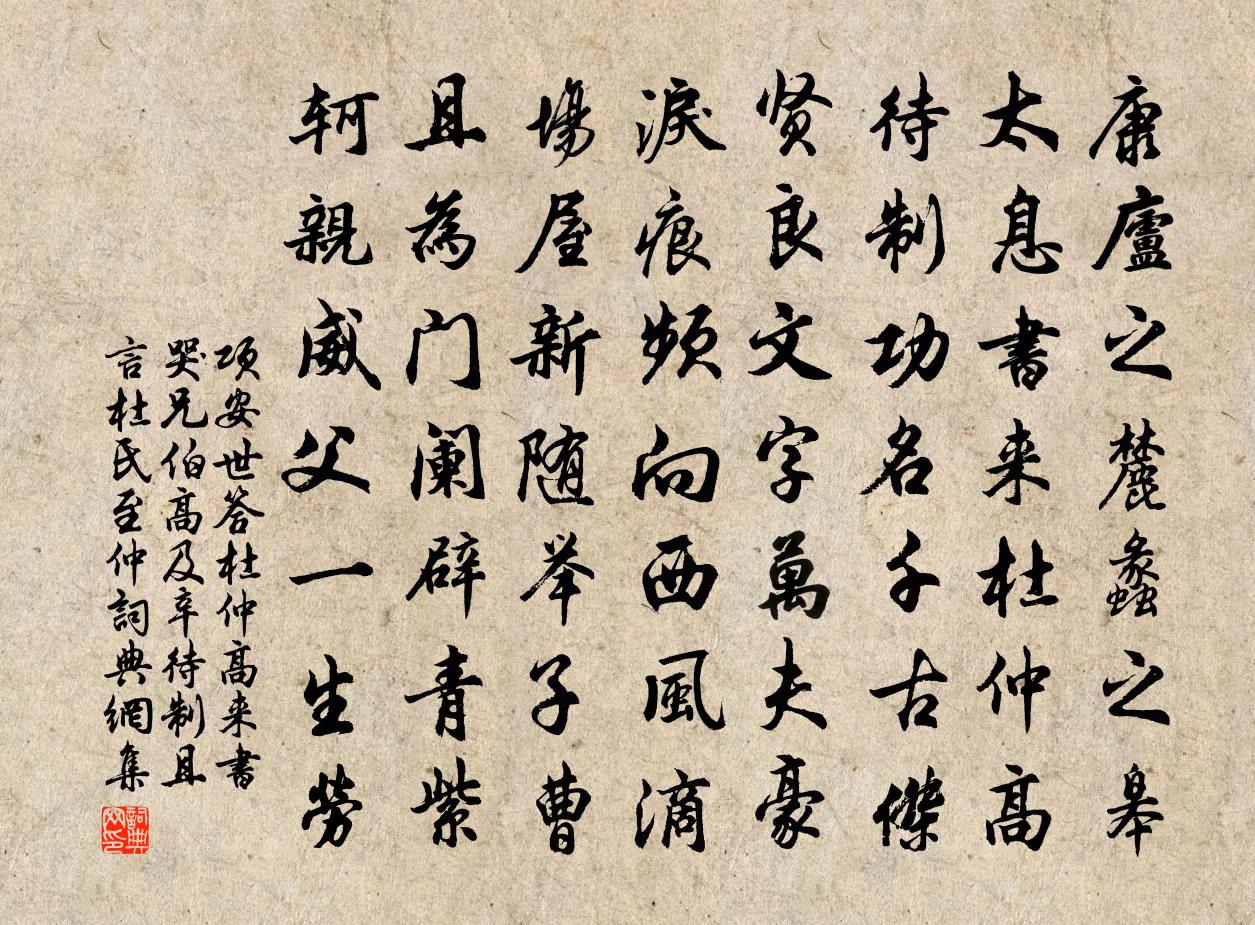 康廬之麓蠡之皋
太息書来杜仲高
待制功名千古傑
贤良文字萬夫豪
淚痕頻向西風滴
場屋新随举子曹
且為门阑辟青紫
轲親威父一生勞
项安世答杜仲高来書
哭兄伯高及辛待制且
言杜氏至仲詞典網集
詞典网印